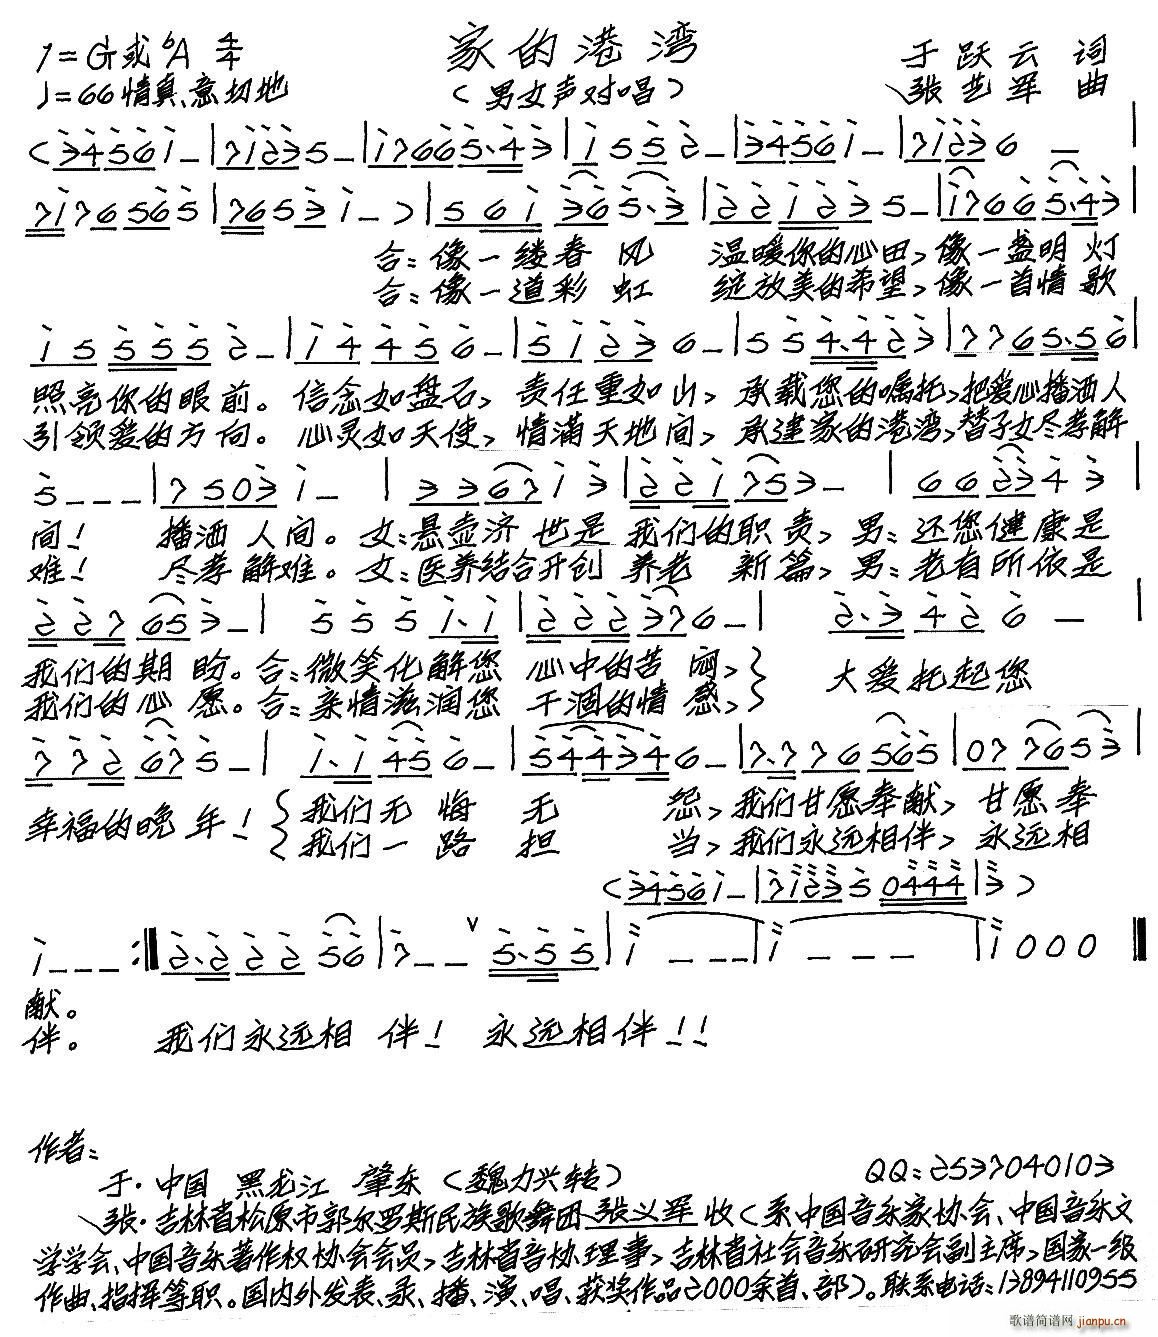 家的港湾
1=G或bA 4/4
于跃云 词
♩=66 情真、意切地
（男女声对唱）
张艺军 曲
(34561- | 71235- | 17665·43 | 15552- | 34561- | 71236 -
7176565 | 76531- ) | 561365·3 | 221235- | 17665·43
合：像一缕春 风 温暖你的心田，像一盏明 灯
合：像一道彩 虹 绽放美的希望，像一首情 歌
155552- | 144456- | 51236- | 554·423 | 7765·56
照亮你的眼前。信念如盘石，责任重如山，承载您的嘱托，把爱心播洒人
引领爱的方向。心灵如天使，情满天地间，承建家的港湾，替子女尽孝解
5--- | 75031- | 336713 | 221753- | 662343
间！ 播洒人间。女：悬壶济世是 我们的职责，男：还您健康是
难！ 尽孝解难。女：医养结合开创 养老 新篇，男：老有所依是
227653- | 5551·1 | 222376- | 2·3426 -
我们的期 盼。合：微笑化解您 心中的苦 闷，} 大爱托起您
我们的心 愿。合：亲情滋润您 干涸的情 感，}
772675- | 1·1456- | 544346- | 7·776565 | 077653
幸福的晚 年！{我们无 悔 无 怨，我们甘愿奉献，甘愿奉
{我们一 路 担 当，我们永远相伴，永远相
(34561- | 712350444 | 3)
1--- :‖ 2·22256 | 7-- ∨ 5·55 | 1--- | 1--- | 1000 ‖
献。
伴。 我们永远相 伴！ 永远相伴！！
作者：
于·中国 黑龙江 肇东（魏力兴转）
QQ：2537040103
张·吉林省松原市郭尔罗斯民族歌舞团张义军 收（系中国音乐家协会、中国音乐文
学学会、中国音乐著作权协会会员，吉林省音协理事，吉林省社会音乐研究会副主席，国家一级
作曲、指挥等职。国内外发表、录、播、演、唱、获奖作品2000余首、部）。联系电话：13894110955
歌谱简谱网 jianpu.cn